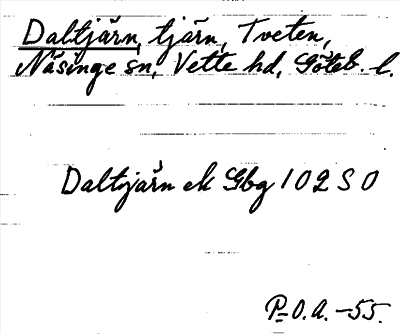 Daltjärn, tjärn, Tveten,
Näsinge sn, Vette hd, Göteb. l.
Daltjärn ek Gbg 102 S O
P-O.A. -55.